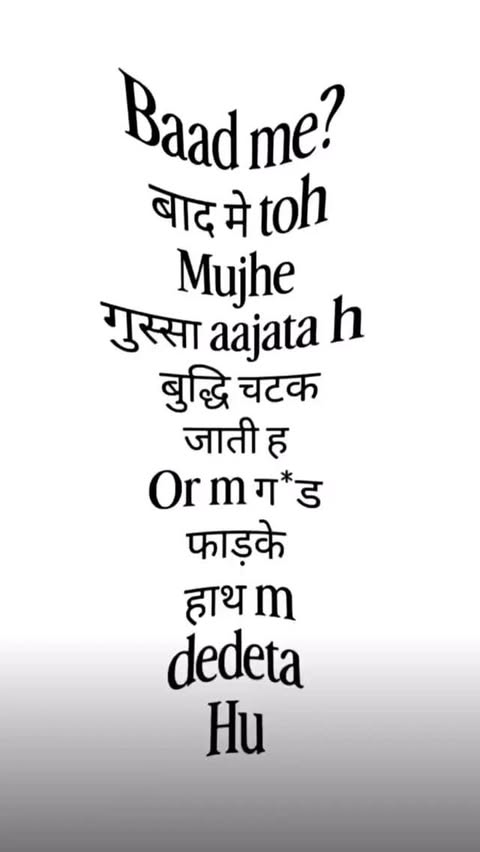 Baad me?
बाद मे toh
Mujhe
गुस्सा aajata h
बुद्धि चटक
जाती ह
Or m ग*ड
फाड़के
हाथ m
dedeta
Hu